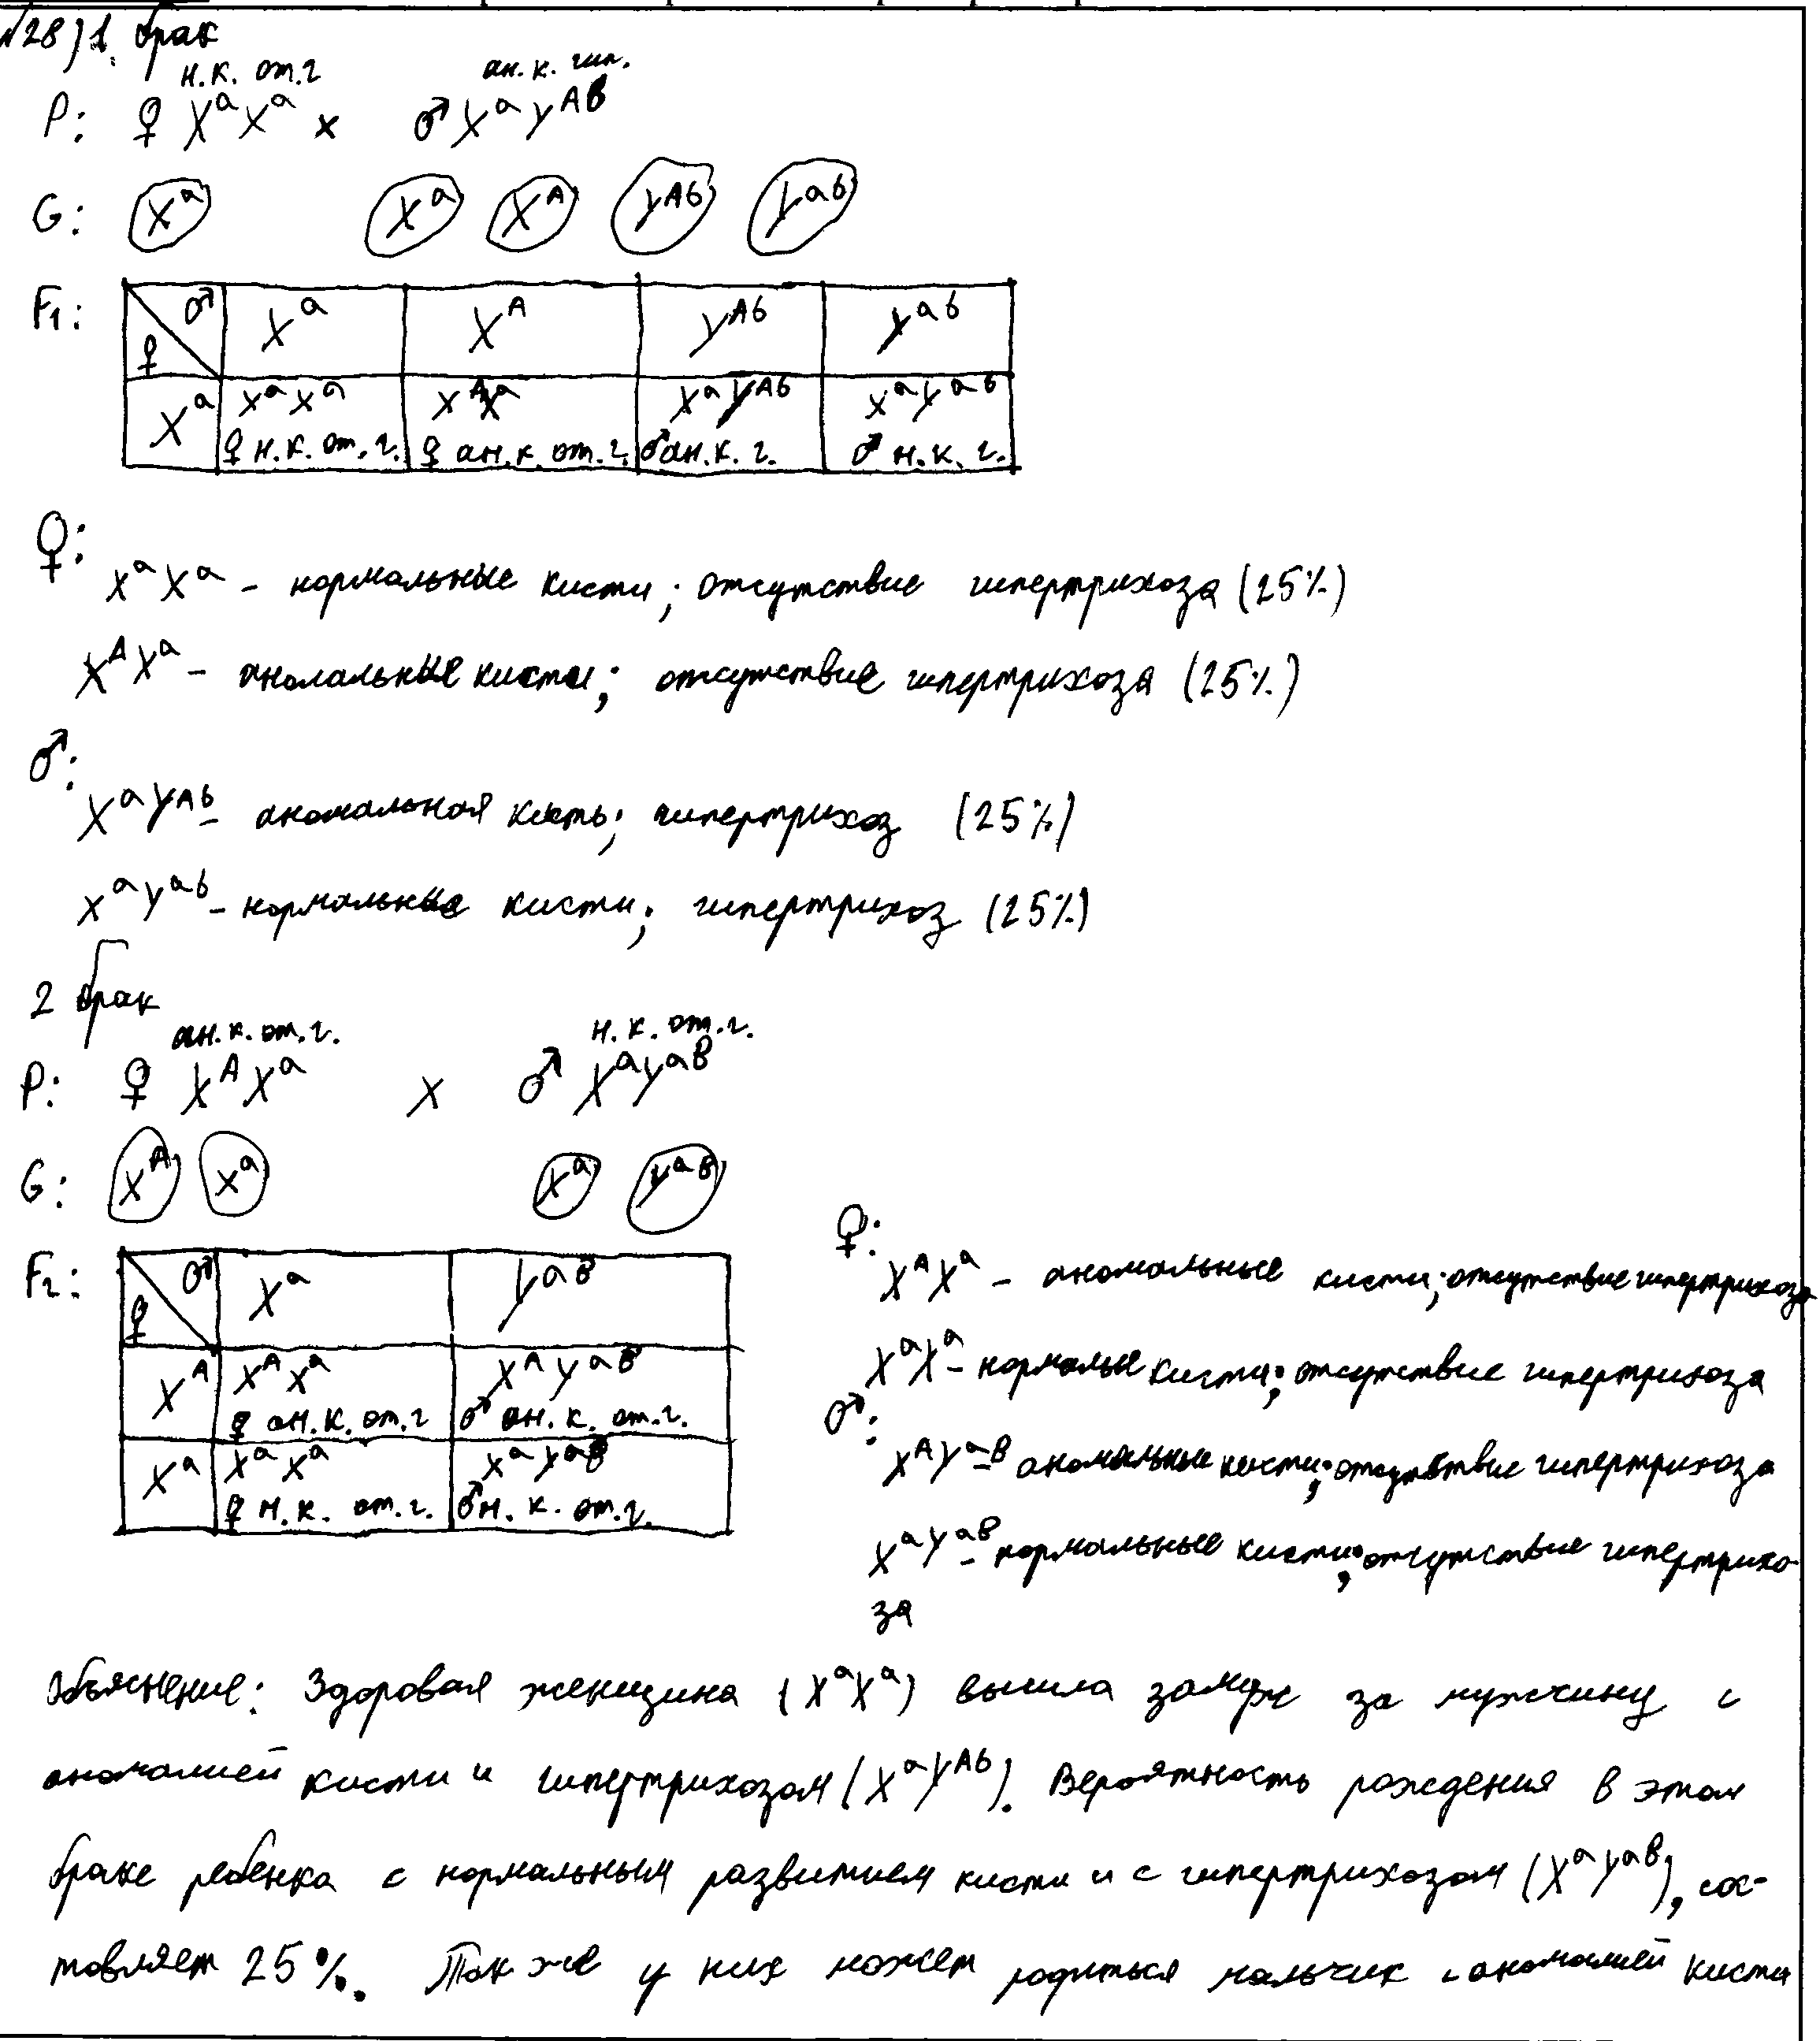 №28) 1. брак
н.к. от.г ан. к. гип.
P: ♀ XᵃXᵃ x ♂ XᵃYᴬᴮ
G: Xᵃ Xᵃ Xᴬ Yᴬᵇ Yᵃᵇ
F₁: ♂ ♀ Xᵃ Xᴬ Yᴬᵇ Yᵃᵇ
Xᵃ XᵃXᵃ XᴬXᵃ XᵃYᴬᵇ XᵃYᵃᵇ
♀ н.к. от.г. ♀ ан.к. от.г. ♂ ан.к. г. ♂ н.к. г.
♀:
XᵃXᵃ - нормальные кисти; отсутствие гипертрихоза (25%)
XᴬXᵃ - аномальные кисти; отсутствие гипертрихоза (25%)
♂:
XᵃYᴬᵇ - аномальная кисть; гипертрихоз (25%)
XᵃYᵃᵇ - нормальные кисти; гипертрихоз (25%)
2 брак
ан.к. от.г. н.к. от.г.
P: ♀ XᴬXᵃ X ♂ XᵃYᵃᴮ
G: Xᴬ Xᵃ Xᵃ Yᵃᴮ
F₂: ♂ ♀ Xᵃ Yᵃᴮ
Xᴬ XᴬXᵃ XᴬYᵃᴮ
♀ ан.к. от.г ♂ ан.к. от.г.
Xᵃ XᵃXᵃ XᵃYᵃᴮ
♀ н.к. от.г. ♂ н.к. от.г.
♀:
XᴬXᵃ - аномальные кисти; отсутствие гипертрихоза
XᵃXᵃ - нормалые кисти; отсутствие гипертрихоза
♂:
XᴬYᵃᴮ - аномальные кисти; отсутвтвие гипертрихоза
XᵃYᵃᴮ - нормальные кисти; отсутствие гипертрихо-
за
Объяснение: Здоровая женщина (XᵃXᵃ) вышла замуж за мужчину с
аномалией кисти и гипертрихозом (XᵃYᴬᵇ). Вероятность рождения в этом
браке ребенка с нормальным развитием кисти и с гипертрихозом (XᵃYᵃᴮ), сос-
товляет 25%. Так же у них может родиться мальчик с аномалией кисти